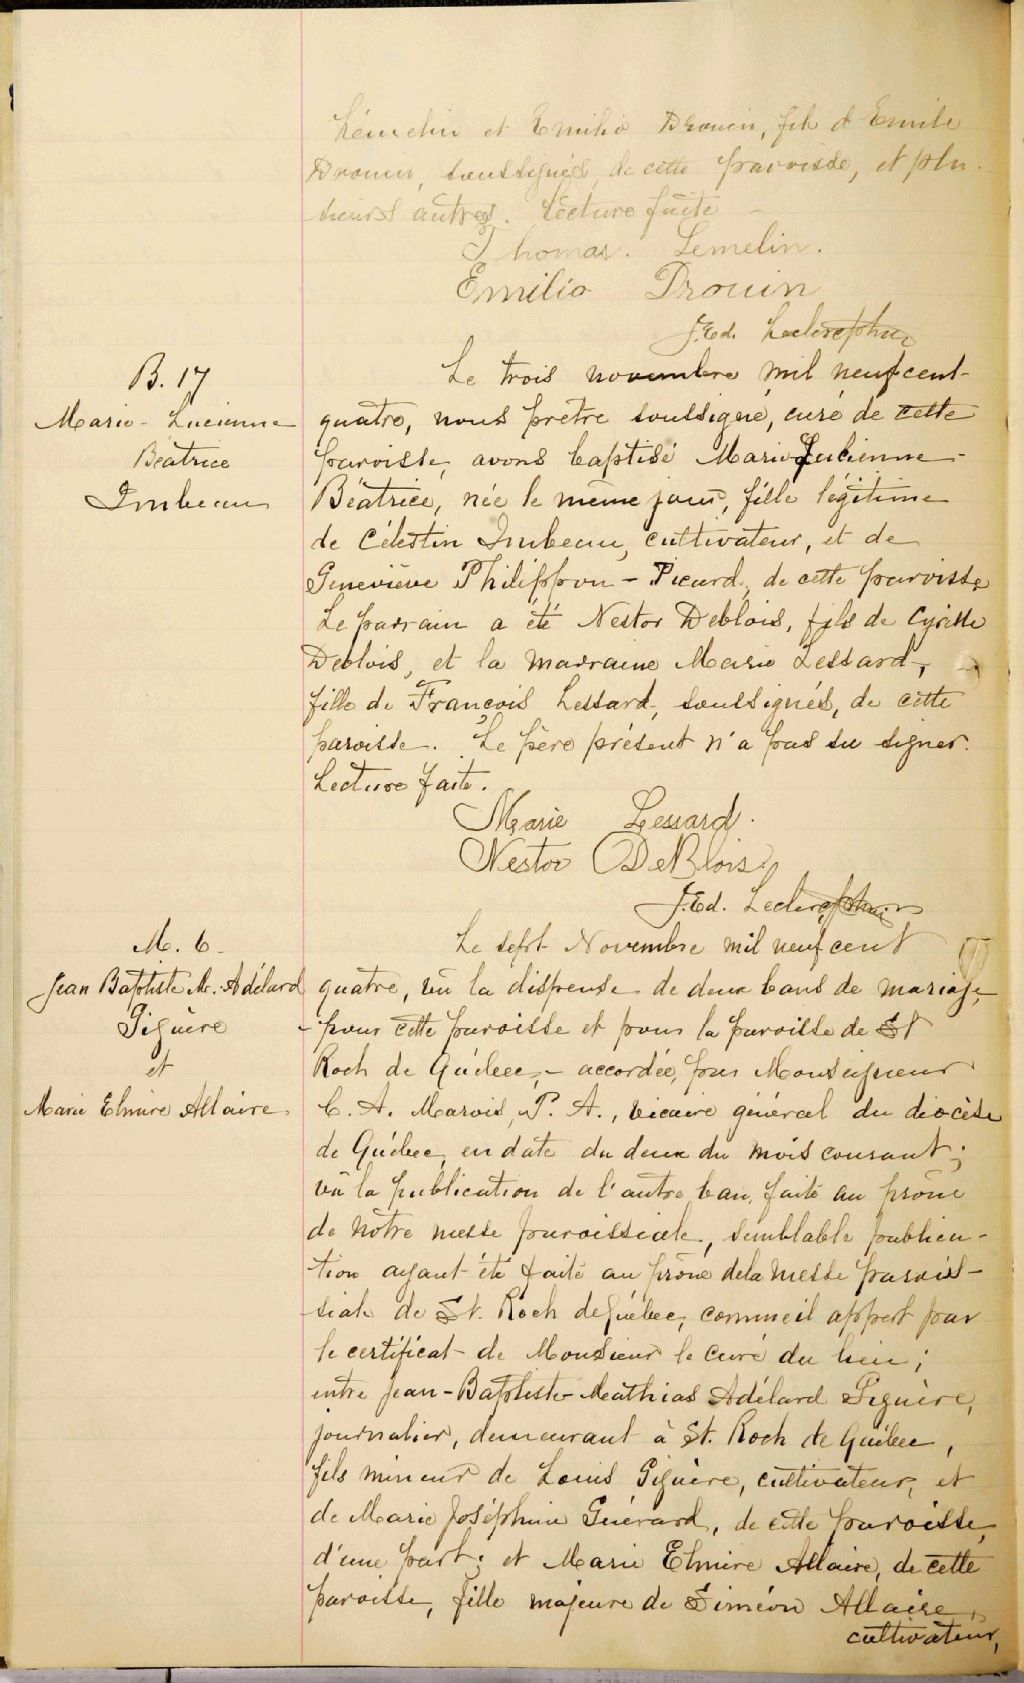 Lémelin et Emilio Drouin, fils d'Emile
Drouin, soussignés, de cette paroisse, et plu-
sieurs autres. Lecture faite -
Thomas. Lemelin.
Emilio Drouin
J. Ed. Leclerc ptre
B. 17
Marie-Lucienne
Béatrice
Imbeau
Le trois novembre mil neuf cent-
quatre, nous prêtre soussigné, curé de cette
paroisse, avons baptisé Marie Lucienne-
Béatrice, née le même jour, fille légitime
de Célestin Imbeau, cultivateur, et de
Geneviève Philippon - Picard, de cette paroisse
Le parrain a été Nestor Deblois, fils de Cyrille
Deblois, et la marraine Marie Lessard,
fille de François Lessard, soussignés, de cette
paroisse. Le père présent n'a pas su signer.
Lecture faite.
Marie Lessard.
Nestor DeBlois.
J. Ed. Leclerc ptre
M. 6
Jean Baptiste M. Adélard
Giguère
et
Marie Elmire Allaire
Le sept Novembre mil neuf cent
quatre, vu la dispense de deux bans de mariage,
- pour cette paroisse et pour la paroisse de St
Roch de Québec, - accordée, par Monseigneur
C. A. Marois, P. A., vicaire général du diocèse
de Québec, en date du deux du mois courant;
vu la publication de l'autre ban, faite au prône
de nôtre messe paroissiale, semblable publica-
tion ayant été faite au prône de la messe parois-
siale de St. Roch de Québec, comme il appert par
le certificat de Monsieur le curé du lieu;
entre Jean-Baptiste Mathias Adélard Giguère,
journalier, demeurant à St. Roch de Québec,
fils mineur de Louis Giguère, cultivateur, et
de Marie Joséphine Guérard, de cette paroisse,
d'une part; et Marie Elmire Allaire, de cette
paroisse, fille majeure de Siméon Allaire,
cultivateur,